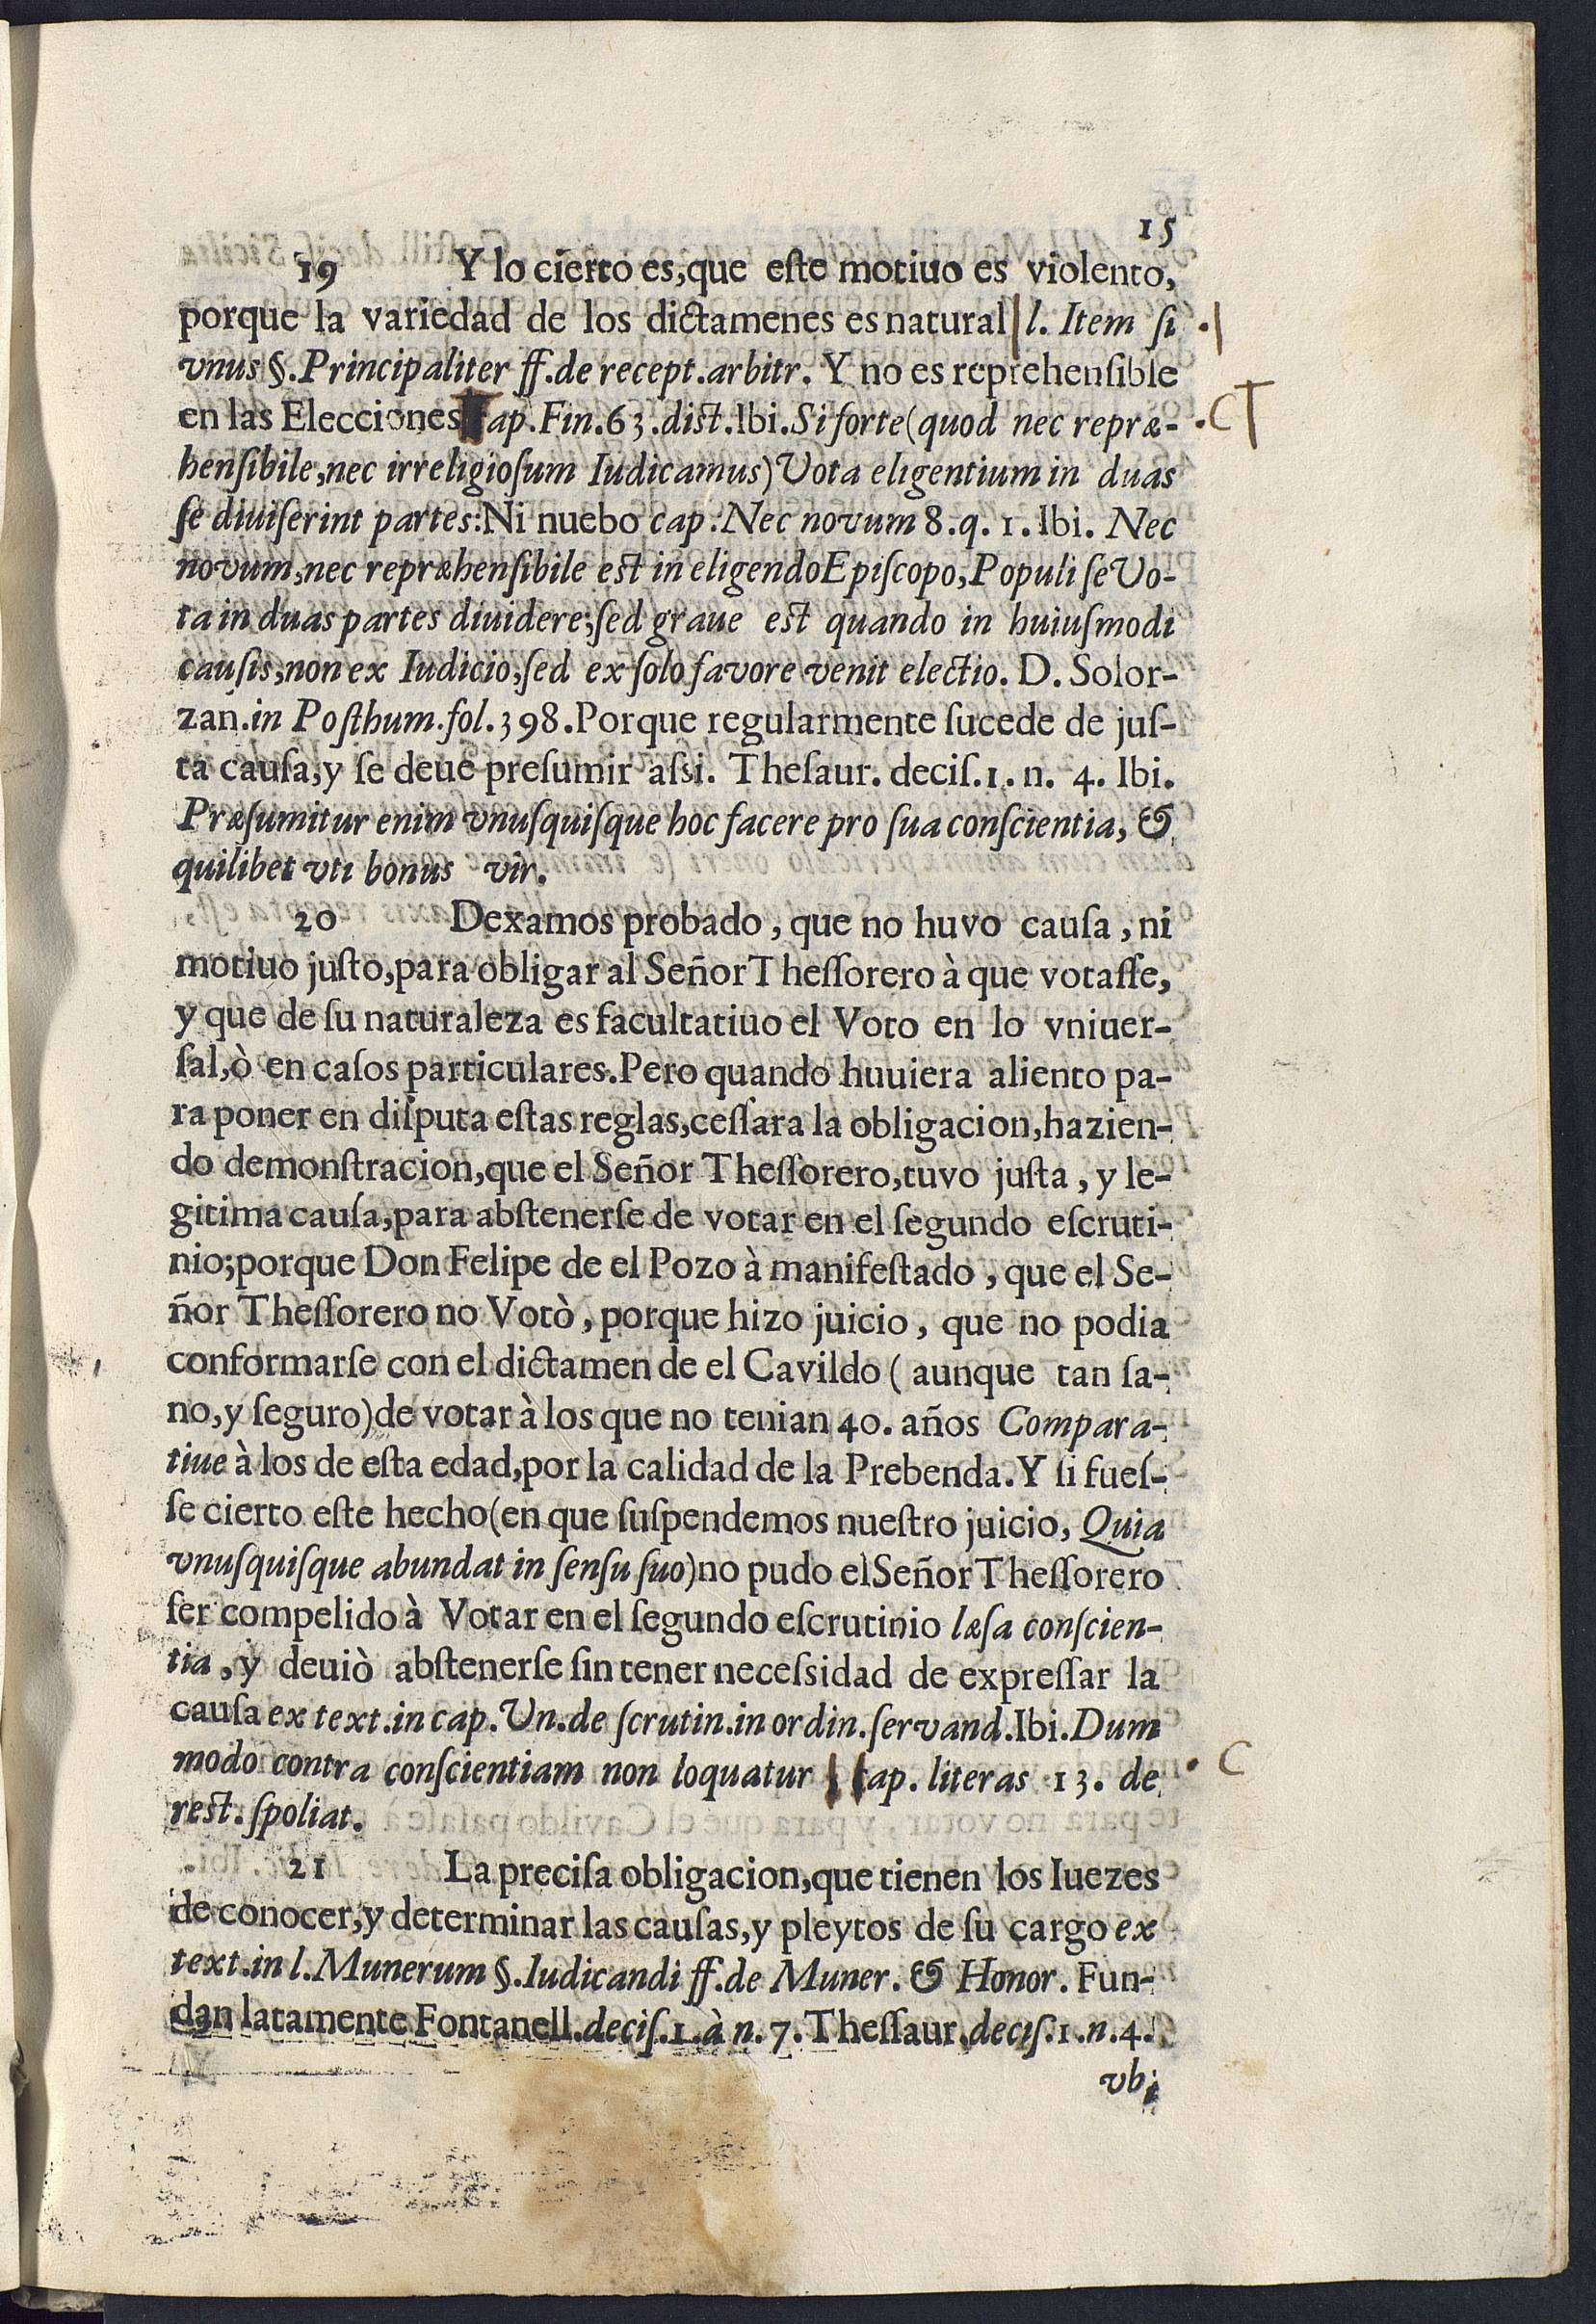 15
19 Y lo cierto es,que eſte motiuo es violento,
porque la variedad de los dictamenes es natural | l. Item ſi .|
vnus §. Principaliter ff. de recept. arbitr. Y no es reprehenſible
en las Elecciones ap. Fin. 63. diſt. Ibi. Si forte (quod nec repræ- .CT
henſibile, nec irreligioſum Iudicamus) Vota eligentium in duas
ſe diuiſerint partes: Ni nuebo cap. Nec novum 8. q. 1. Ibi. Nec
novum, nec repræhenſibile eſt in eligendo Epiſcopo, Populi ſe Vo-
ta in duas partes diuidere; ſed graue eſt quando in huiuſmodi
cauſis, non ex Iudicio, ſed ex ſolo favore venit electio. D. Solor-
zan. in Poſthum. fol. 398. Porque regularmente ſucede de juſ-
ta cauſa, y ſe deue preſumir aſsi. Theſaur. deciſ. 1. n. 4. Ibi.
Præſumitur enim vnuſquiſque hoc facere pro ſua conſcientia, &
quilibet vti bonus vir.
20 Dexamos probado, que no huvo cauſa, ni
motiuo juſto, para obligar al Señor Theſſorero à que votaſſe,
y que de ſu naturaleza es facultatiuo el Voto en lo vniuer-
ſal, ò en caſos particulares. Pero quando huuiera aliento pa-
ra poner en diſputa eſtas reglas, ceſſara la obligacion, hazien-
do demonſtracion, que el Señor Theſſorero, tuvo juſta, y le-
gitima cauſa, para abſtenerſe de votar en el ſegundo eſcruti-
nio; porque Don Felipe de el Pozo à manifeſtado, que el Se-
ñor Theſſorero no Votò, porque hizo juicio, que no podia
conformarſe con el dictamen de el Cavildo ( aunque tan ſa-
no, y ſeguro) de votar à los que no tenian 40. años Compara-
tiue à los de eſta edad, por la calidad de la Prebenda. Y ſi fueſ-
ſe cierto eſte hecho (en que ſuſpendemos nueſtro juicio, Quia
vnuſquiſque abundat in ſenſu ſuo) no pudo el Señor Theſſorero
ſer compelido à Votar en el ſegundo eſcrutinio læſa conſcien-
tia, y deuiò abſtenerſe ſin tener neceſsidad de expreſſar la
cauſa ex text. in cap. Un. de ſcrutin. in ordin. ſervand. Ibi. Dum
modo contra conſcientiam non loquatur | ap. literas 13. de . C
reſt. ſpoliat.
21 La preciſa obligacion, que tienen los Iuezes
de conocer, y determinar las cauſas, y pleytos de ſu cargo ex
text. in l. Munerum §. Iudicandi ff. de Muner. & Honor. Fun-
dan latamente Fontanell. deciſ. 1. à n. 7. Theſſaur. deciſ. 1. n. 4.
vbi